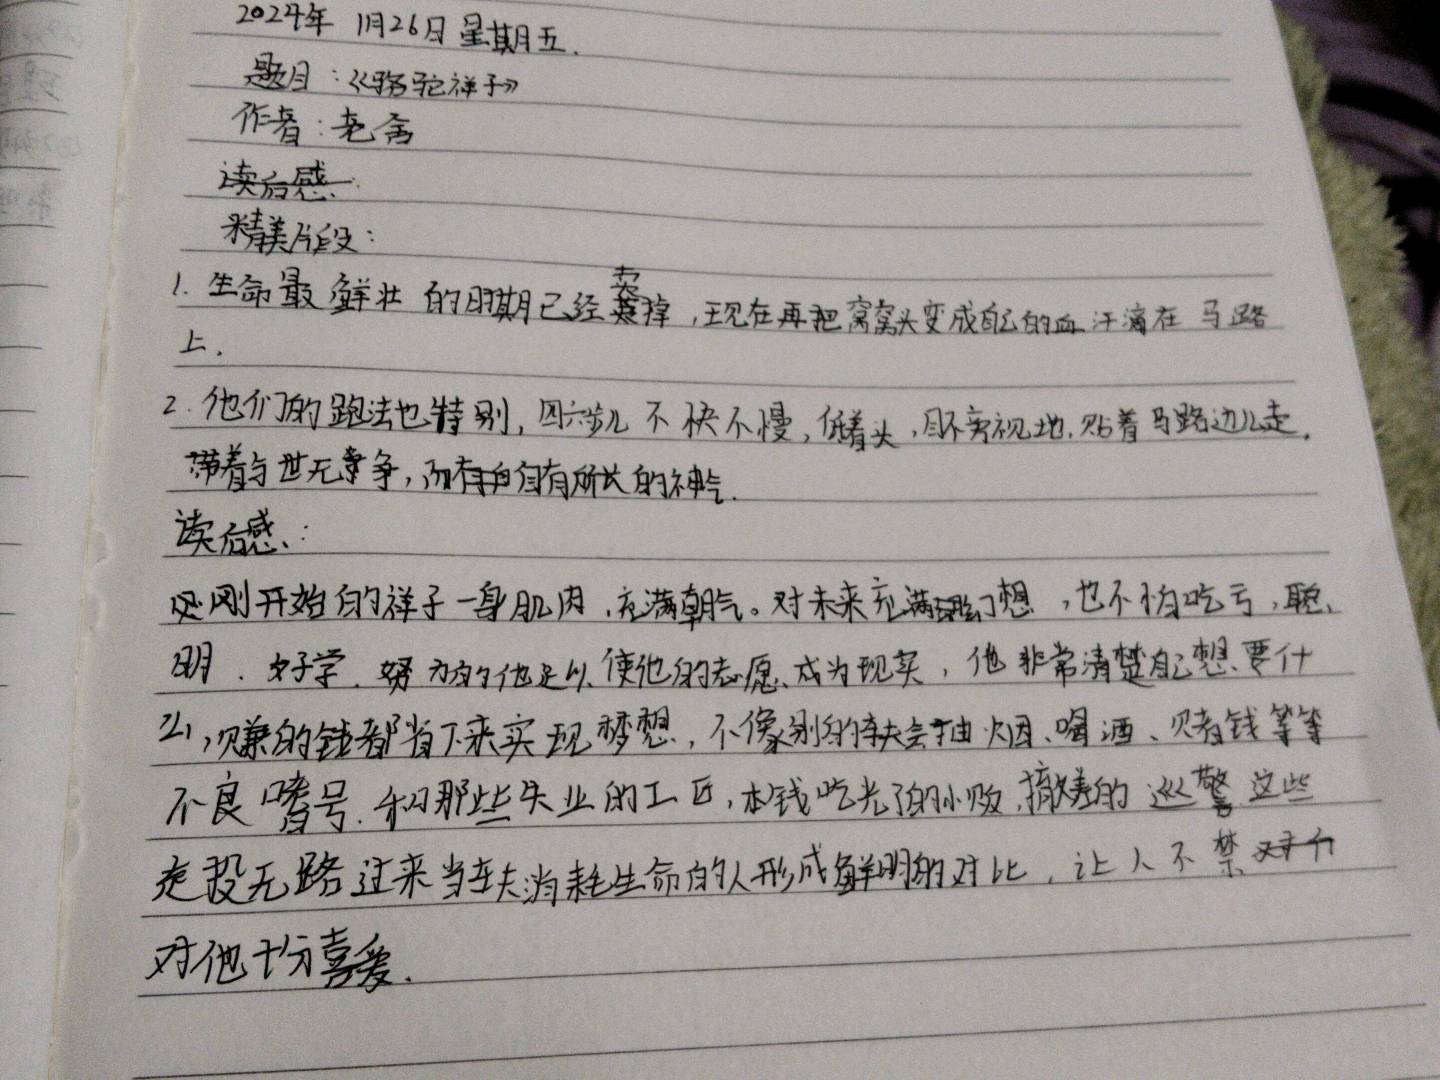 2024年 1月26日 星期五.
题目:《骆驼祥子》
作者:老舍
读后感:
精美片段:
1. 生命最鲜壮的时期已经卖掉,现在再把窝窝头变成自己的血汗滴在马路
上.
2. 他们的跑法也特别,四六步儿不快不慢,低着头,目不旁视地,贴着马路边儿走,
带着与世无争,而自有所长的神气.
读后感:
刚开始的祥子一身肌肉,充满朝气。对未来充满幻想,也不怕吃亏,聪
明、好学、努力的他足以使他的志愿成为现实,他非常清楚自己想要什
么,赚的钱都省下来实现梦想,不像别的车夫会抽烟、喝酒、赌钱等等
不良嗜号.和那些失业的工匠,本钱吃光了的小贩,被撤差的巡警这些
走投无路过来当车夫消耗生命的人形成鲜明的对比,让人不禁
对他十分喜爱.